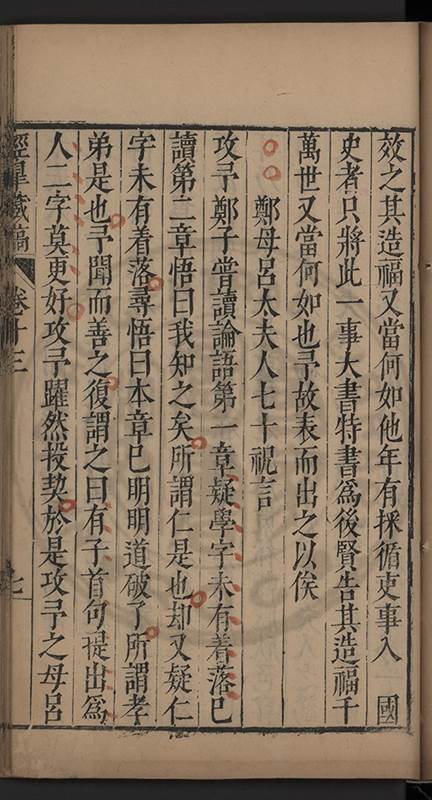 效之其造福又當何如他年有採循吏事入國
史者只將此一事大書特書爲後賢告其造福千
萬世又當何如也予故表而出之以俟
鄭母呂太夫人七十祝言
攻予鄭子嘗讀論語第一章疑學字未有着落已
讀第二章悟曰我知之矣所謂仁是也却又疑仁
字未有着落尋悟曰本章已明明道破了所謂孝
弟是也予聞而善之復謂之曰有子首句提出爲
人二字莫更好攻予躍然投契於是攻予之母呂
卷十三
七